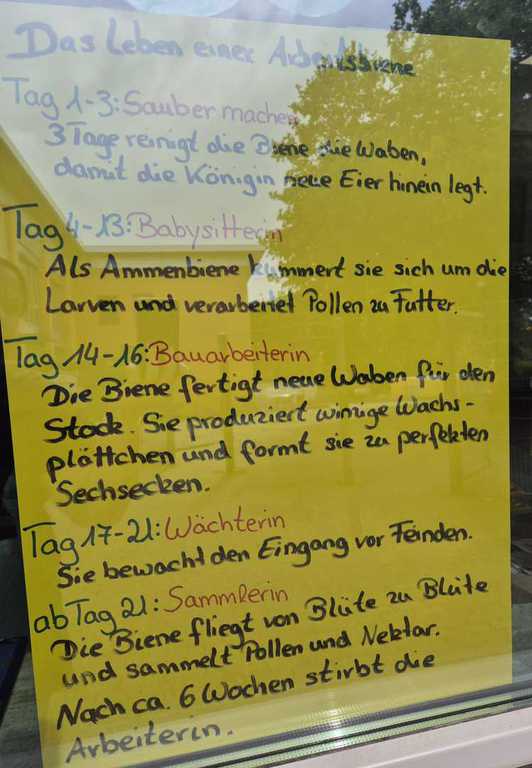 Das Leben einer Arbeitsbiene
Tag 1-3: Sauber machen
3 Tage reinigt die Biene die Waben,
damit die Königin neue Eier hinein legt.
Tag 4-13: Babysitterin
Als Ammenbiene kümmert sie sich um die
Larven und verarbeitet Pollen zu Futter.
Tag 14-16: Bauarbeiterin
Die Biene fertigt neue Waben für den
Stock. Sie produziert winzige Wachs-
plättchen und formt sie zu perfekten
Sechsecken.
Tag 17-21: Wächterin
Sie bewacht den Eingang vor Feinden.
ab Tag 21: Sammlerin
Die Biene fliegt von Blüte zu Blüte
und sammelt Pollen und Nektar.
Nach ca. 6 Wochen stirbt die
Arbeiterin.